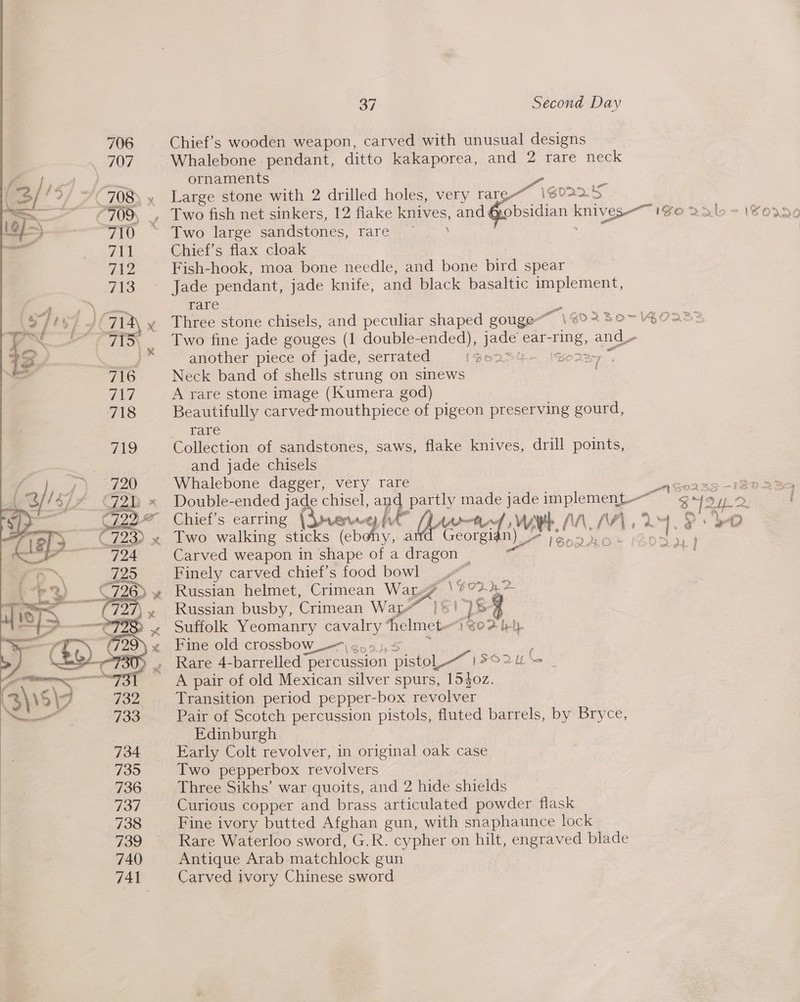 37 Second Day
706 Chief's wooden weapon, carved with unusual designs
707 Whalebone pendant, ditto kakaporea, and 2 rare neck
ornaments
708 x Large stone with 2 drilled holes, very rare 180225
709 Two fish net sinkers, 12 flake knives, and obsidian knives
710 Two large sandstones, rare
711 Chief's flax cloak
712 Fish-hook, moa bone needle, and bone bird spear
713 Jade pendant, jade knife, and black basaltic implement,
rare
714 x Three stone chisels, and peculiar shaped gouge
715 Two fine jade gouges (1 double-ended), jade ear-ring, and
x another piece of jade, serrated
716 Neck band of shells strung on sinews
717 A rare stone image (Kumera god)
718 Beautifully carved mouthpiece of pigeon preserving gourd,
rare
719 Collection of sandstones, saws, flake knives, drill points,
and jade chisels
720 Whalebone dagger, very rare
721 x Double-ended jade chisel, and partly made jade implement
722 Chief's earring
723 x Two walking sticks (ebony, and Georgian)
724 Carved weapon in shape of a dragon
725 Finely carved chief's food bowl
726 x Russian helmet, Crimean War
727 x Russian busby, Crimean War
728 x Suffolk Yeomanry cavalry helmet 180244
729 x Fine old crossbow 180245
730 Rare 4-barrelled percussion pistol 180246
731 A pair of old Mexican silver spurs, 15½oz.
732 Transition period pepper-box revolver
733 Pair of Scotch percussion pistols, fluted barrels, by Bryce,
Edinburgh
734 Early Colt revolver, in original oak case
735 Two pepperbox revolvers
736 Three Sikhs' war quoits, and 2 hide shields
737 Curious copper and brass articulated powder flask
738 Fine ivory butted Afghan gun, with snaphaunce lock
739 Rare Waterloo sword, G.R. cypher on hilt, engraved blade
740 Antique Arab matchlock gun
741 Carved ivory Chinese sword